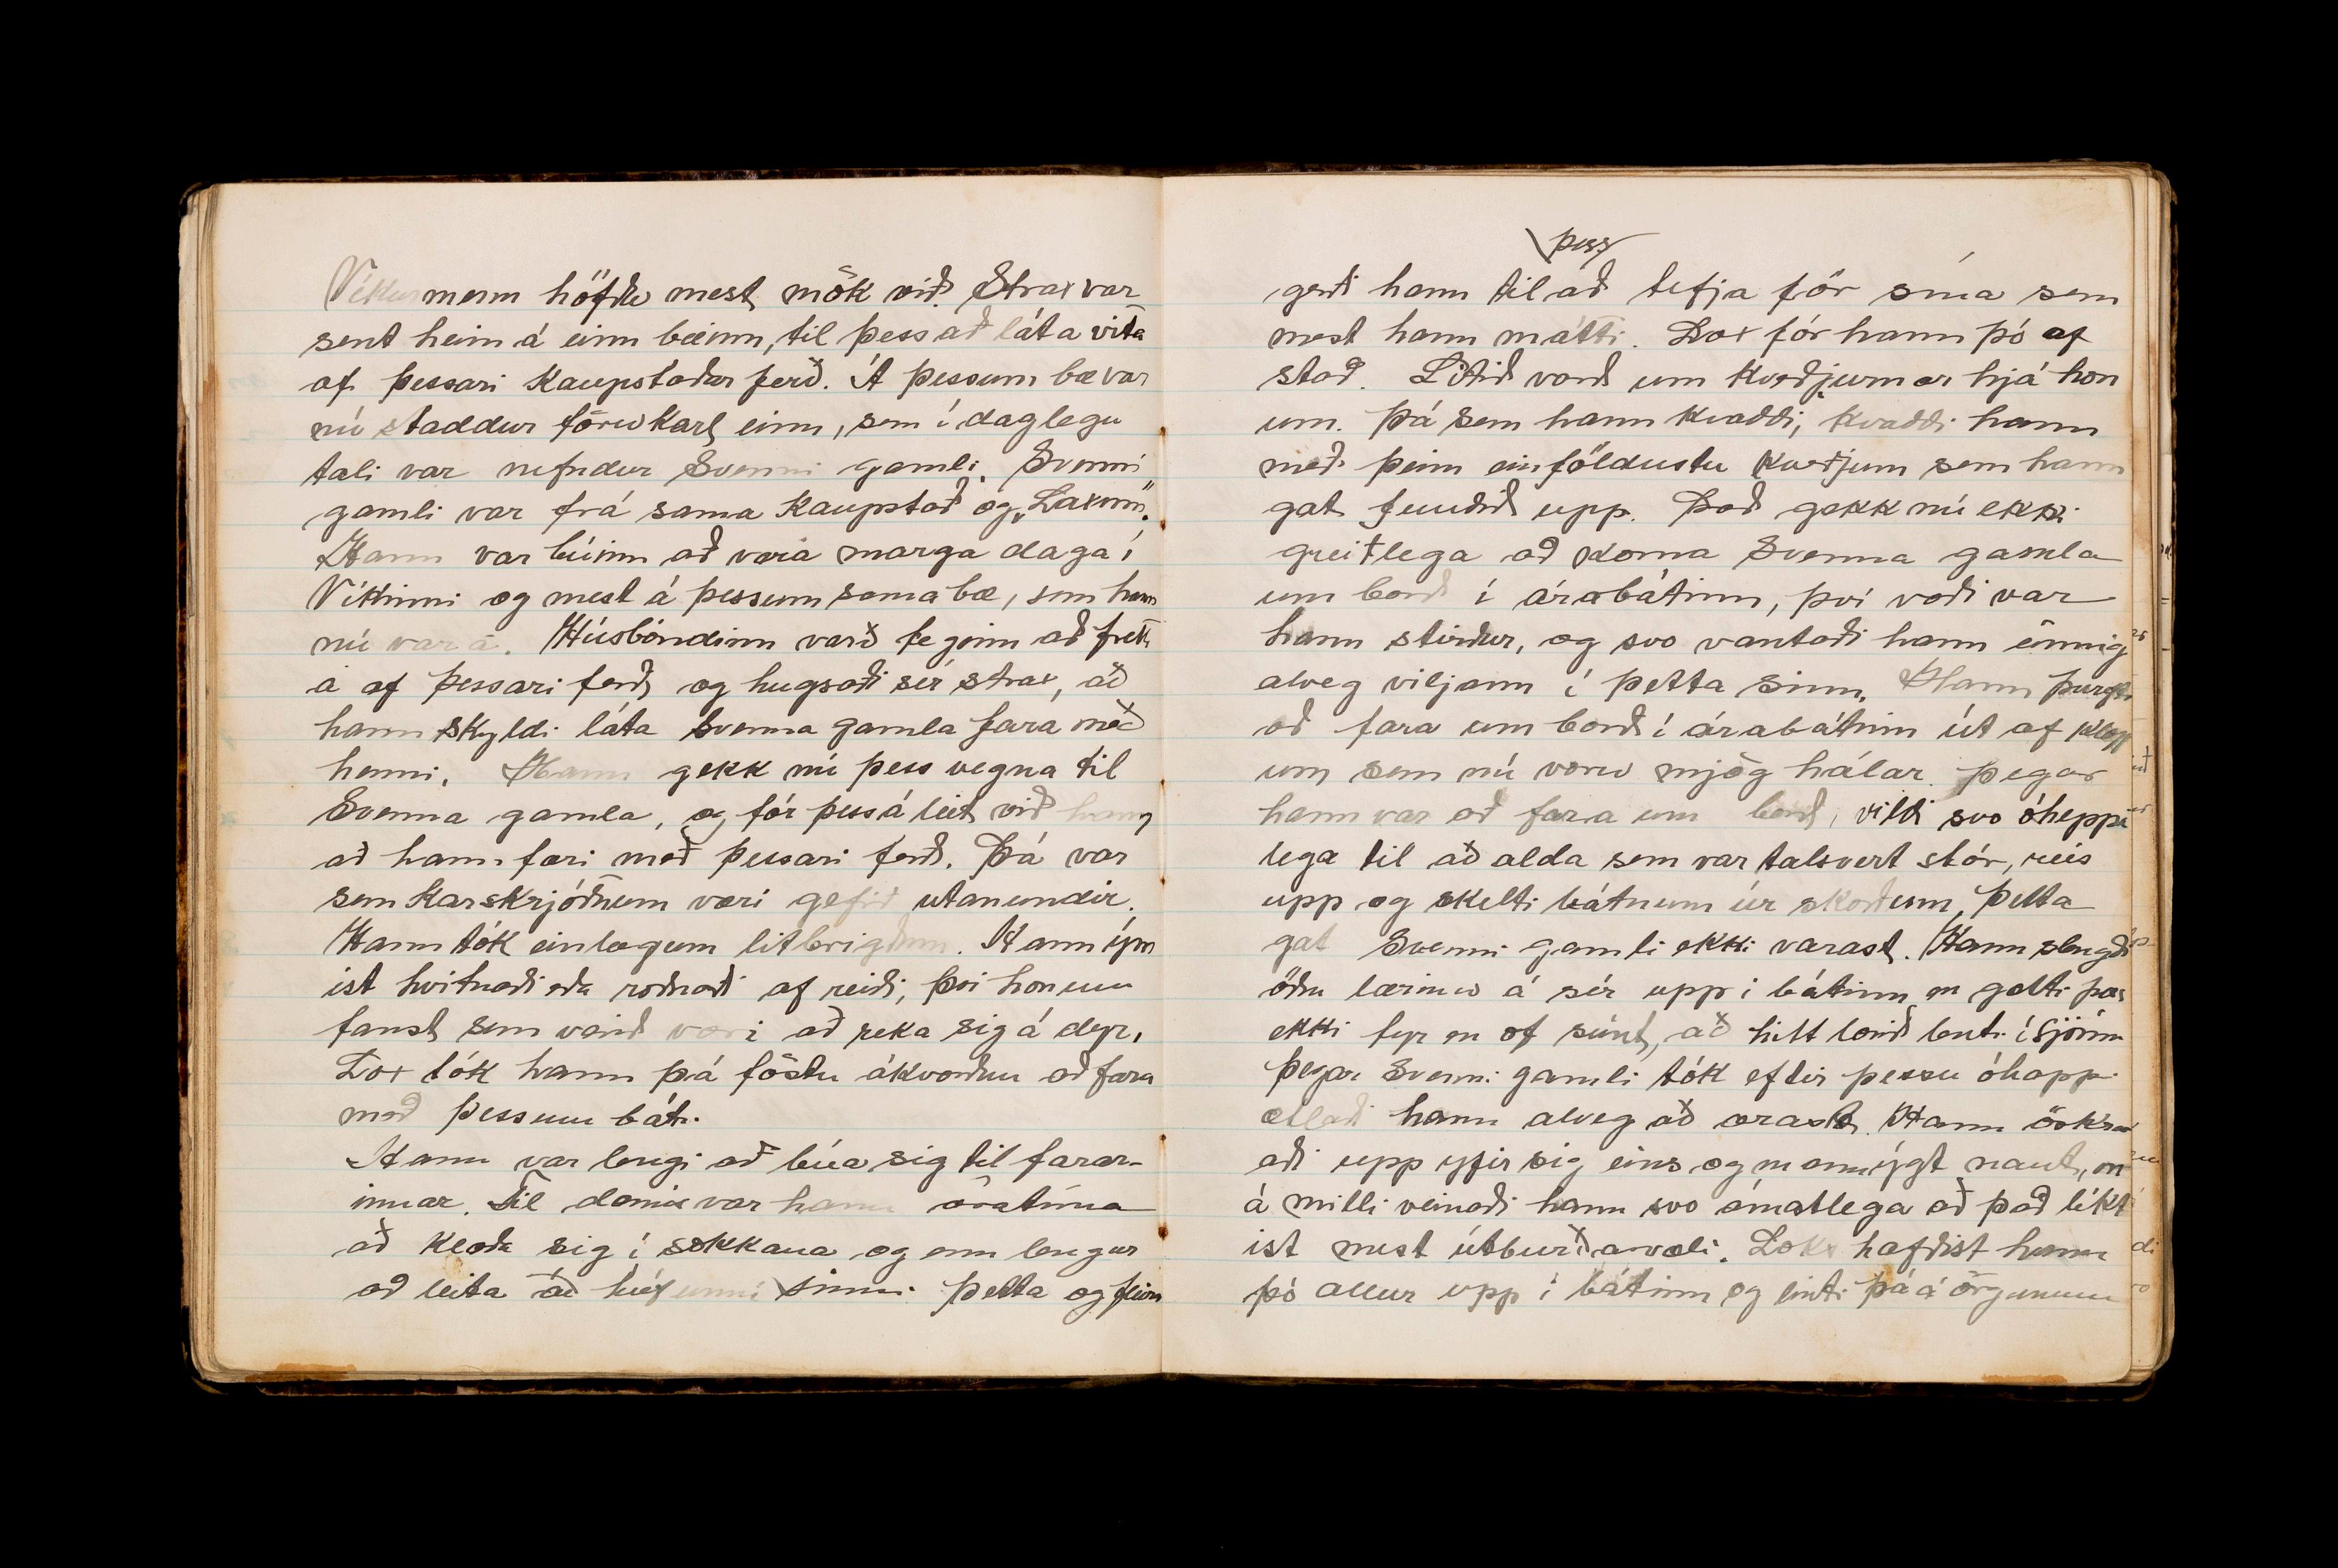 Víkurmenn höfðu mest mök við. Strax var
sent heim á einn bæinn, til þess að láta vita
af þessari Kaupstaðar ferð. Á þessum bæ var
nú staddur förukarl einn, sem í daglegu
tali var nefndur Svenni gamli. Svenni
gamli var frá sama Kaupstað og „Laxinn".
Hann var búinn að vera marga daga í
Víkinni og mest á þessum sama bæ, sem hann
nú var á. Húsbóndinn varð feginn að frétt
a af þessari ferð, og hugsaði sér strax, að
hann skyldi láta Svenna gamla fara með
henni. Hann gekk nú þess vegna til
Svenna gamla, og fór þess á leit við hann,
að hann færi með þessari ferð. Þá var
sem Karskrjóðnum væri gefið utanundir.
Hann tók einlægum litbrigðum. Hann ým
ist hvítnaði eða roðnaði af reiði, því honum
fanst sem væri að reka sig á dyr.
Lox tók hann þá föstu ákvorðun að fara
með þessum báti.
Hann var lengi að búa sig til farar-
innar. Til dæmis var hann óratíma
að klæða sig í sokkana og enn lengur
að leita að húfunni sinni. Þetta og fleira
þess
gerði hann til að tefja för sína sem
mest hann mátti. Lox fór hann þó af
stað. Lítið varð um kveðjurnar hjá hon
um. Þá sem hann kvaddi, kvaddi hann
með þeim einföldustu kveðjum sem hann
gat fundið upp. Það gekk nú ekki
greitlega að koma Svenna gamla
um borð í árabátinn, því voði var
hann stirður, og svo vantaði hann einnig
alveg viljann í þetta sinn. Hann þurfti
að fara um borð í árabátinn út af klöpp
um sem nú voru mjög hálar. Þegar
hann var að fara um borð, vildi svo óheppi
lega til að alda sem var talsvert stór, reis
upp og skelti bátnum úr skorðum, Þetta
gat Svenni gamli ekki varast. Hann slengdi
öðru lærinu á sér upp í bátinn en gætti þess
ekki fyr en of seint, að hitt lærið lenti í sjóinn
Þegar Svenni gamli tók eftir þessu óhappi
ætlaði hann alveg að ærast. Hann öskr
aði upp yfir sig eins og mannýgt naut, en
á milli veinaði hann svo ámátlega að það líkt
ist mest útburðarvæli. Loks hafðist hann
þó allur upp í bátinn og linti þá á örgunum